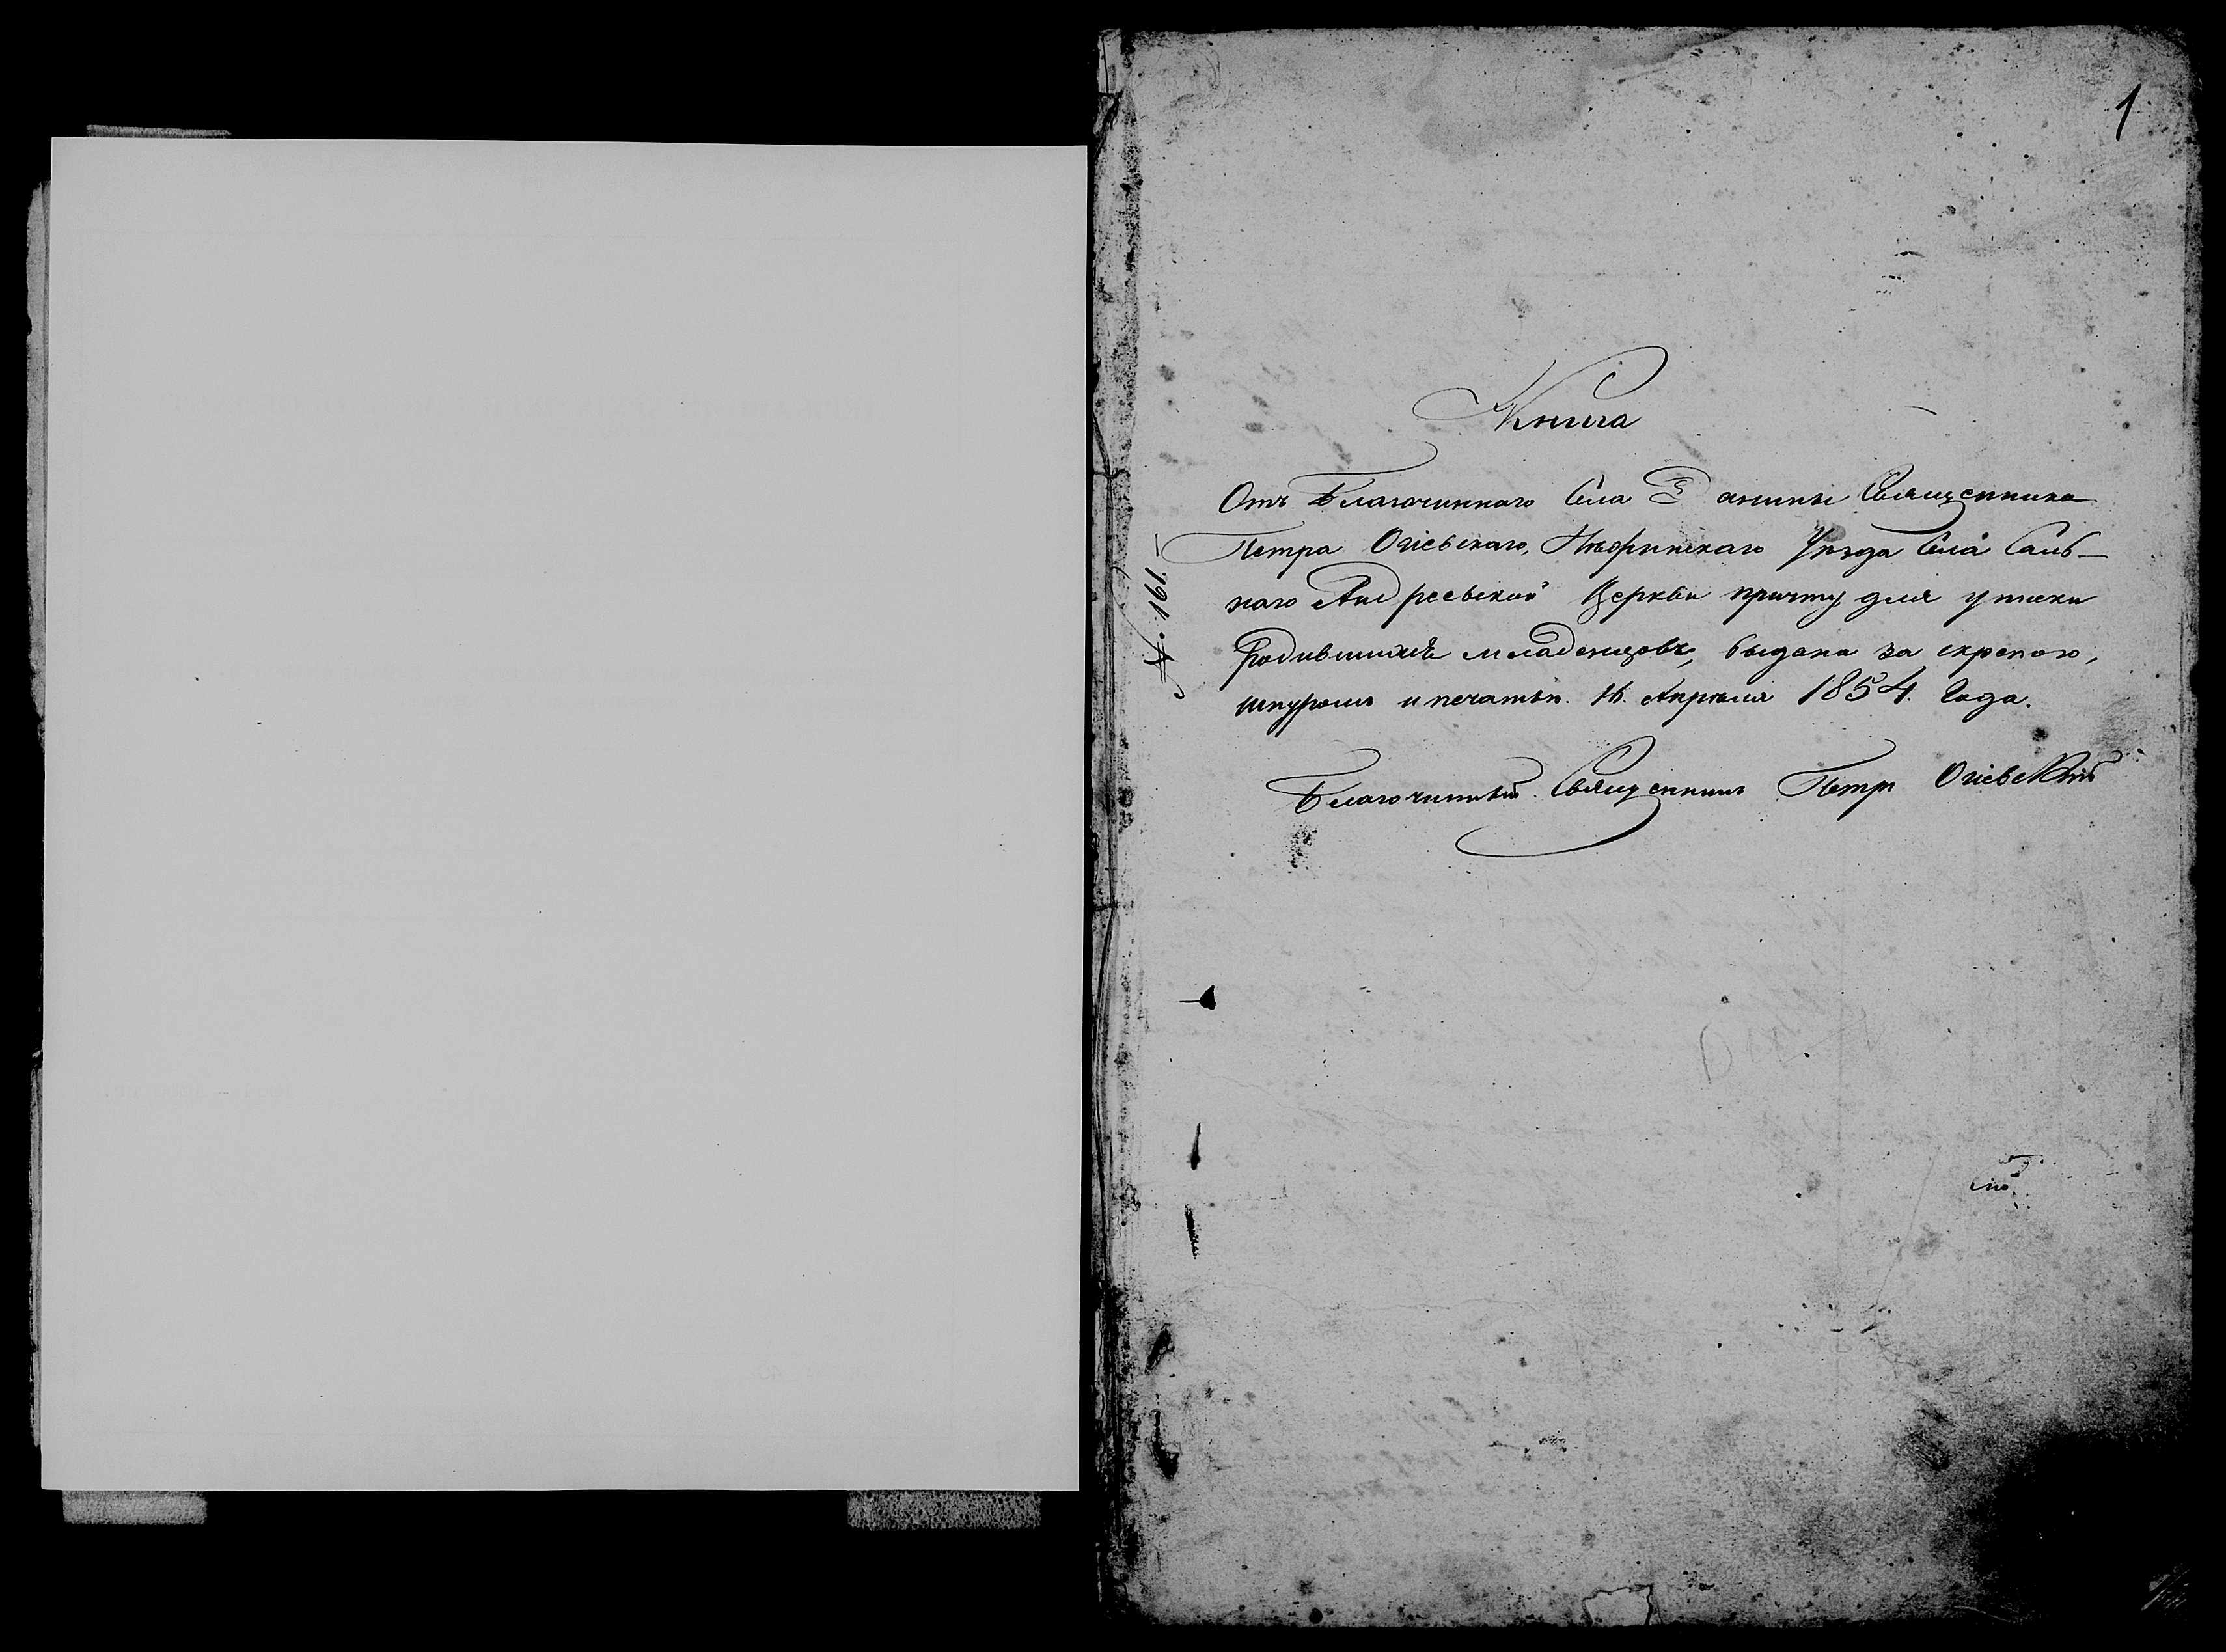 1
Книга
Отъ Благочиннаго Села Данины Священника
Петра Огіевскаго, Нѣжинскаго Уѣзда Села Саль-
наго Андреевской Церкви причту для записки
родившихся младенцовъ, выдана за скрепою,
шнуромъ и печатью. 16. Апрѣля 1854. Года.
Благочинный Священникъ Петръ Огіевскій
№. 161.